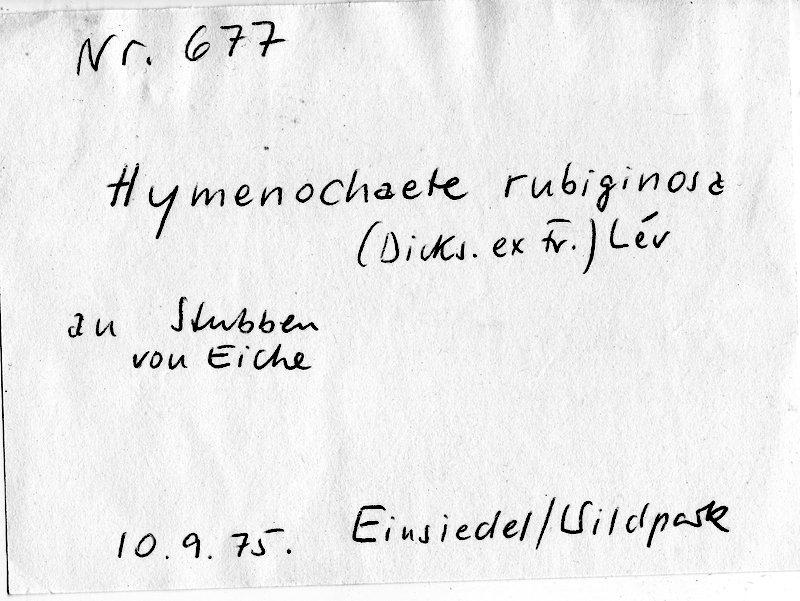 Nr. 677
Hymenochaete rubiginosa
(Dicks. ex Fr.) Lév
an Stubben
von Eiche
10.9.75. Einsiedel/Wildpark